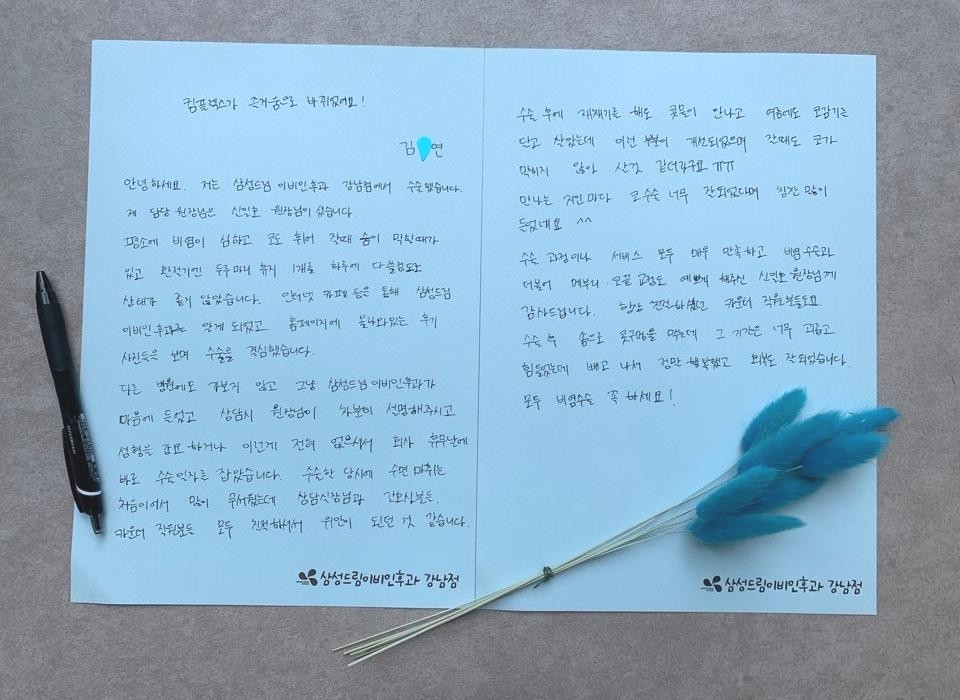 컴플렉스가 즐거움으로 바뀌었어요!
김 연
안녕하세요. 저는 삼성드림 이비인후과 강남점에서 수술했습니다.
제 담당 원장님은 신인호 원장님이셨습니다.
평소에 비염이 심하고 코도 휘어 잘때 숨이 막힐때가
있고 환절기엔 두루마리 휴지 1개를 하루에 다 쓸정도로
상태가 좋지 않았습니다. 인터넷 카페 등을 통해 삼성드림
이비인후과를 알게 되었고 홈페이지에 올라와있는 후기
사진들을 보며 수술을 결심했습니다.
다른 병원에도 가보지 않고 그냥 삼성드림이비인후과가
마음에 들었고 상담시 원장님이 차분히 설명해주시고
성형을 강요하거나 이런게 전혀 없으셔서 회사 휴무날에
바로 수술일자를 잡았습니다. 수술한 당시에 수면 마취는
처음이어서 많이 무서웠는데 상담실장님과 간호사분들,
카운터 직원분들 모두 친절하셔서 위안이 되던 것 같습니다.
삼성드림이비인후과 강남점
수술 후에 재채기를 해도 콧물이 안나고 여름에도 코감기를
달고 살았는데 이런 부분이 개선되었으며 잘때도 코가
막히지 않아 산것 같더라구요 ㅠㅠ
만나는 지인마다 코수술 너무 잘되었다며 칭찬 많이
들었네요 ^^
수술 과정이나 서비스 모두 매우 만족하고 비염수술과
더불어 매부리·코끝 교정도 예쁘게 해주신 신인호 원장님께
감사드립니다. 항상 친절하셨던 카운터 직원분들도요.
수술 후 솜으로 콧구멍을 막는데 그 기간은 너무 괴롭고
힘들었는데 빼고 나서 정말 행복했고 회복도 잘되었습니다.
모두 비염수술 꼭 하세요!
삼성드림이비인후과 강남점